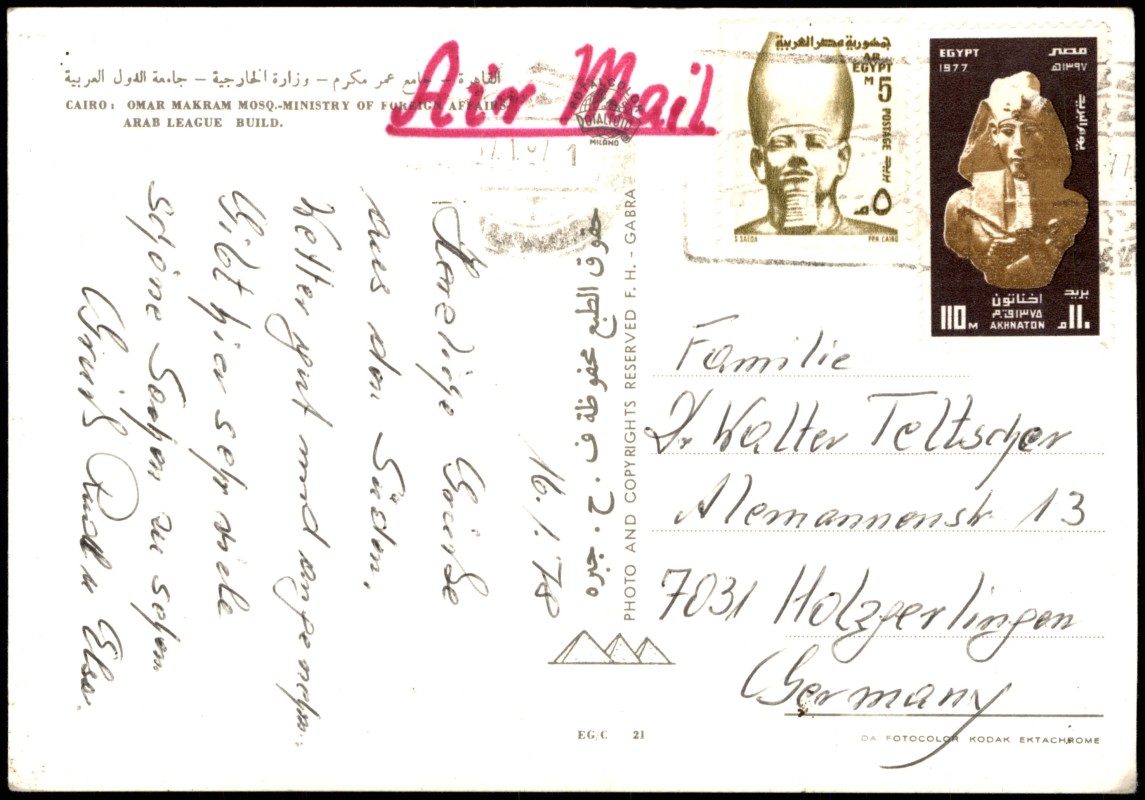 القاهرة – جامع عمر مكرم – وزارة الخارجية – جامعة الدول العربية
CAIRO: OMAR MAKRAM MOSQ.-MINISTRY OF FOREIGN AFFAIRS
ARAB LEAGUE BUILD.
Air Mail
MILANO
جمهورية مصر العربية
AR
EGYPT
M 5
POSTAGE
م ٥
S SAEDA
PPN CAIRO
EGYPT مصر
1977 ١٣٩٧هـ
بريد
اخناتون
١٣٧٥ق.م
AKHNATON
110 M
١١٠ م
16.1.78
Herzliche Grüße
aus dem Süden.
Wetter gut und angenehm.
Gibt hier sehr viele
schöne Sachen zu sehen
Gruß Rudi u Elsa.
حقوق الطبع محفوظة ف . ح . جبره
PHOTO AND COPYRIGHTS RESERVED F. H. - GABRA
Familie
Dr Walter Teltscher
Alemannenstr 13
7031 Holzgerlingen
Germany
EG/C 21
DA FOTOCOLOR KODAK EKTACHROME